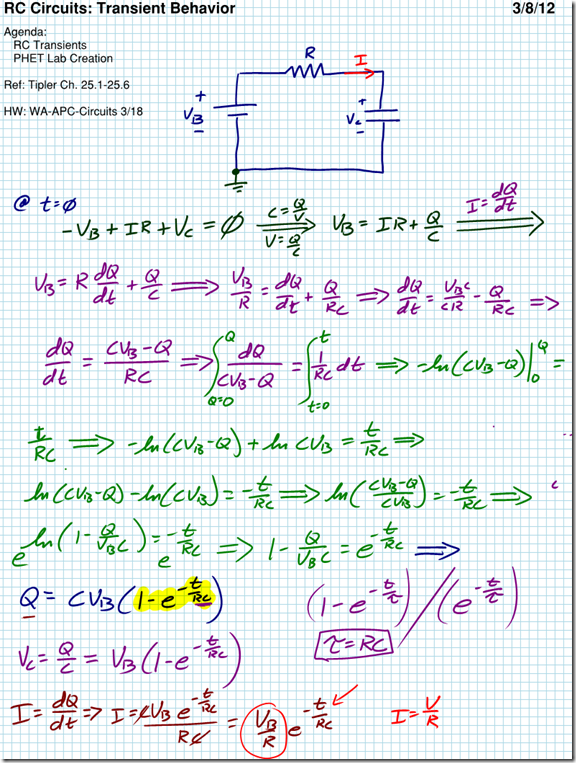 RC Circuits: Transient Behavior 3/8/12
Agenda:
RC Transients
PHET Lab Creation
Ref: Tipler Ch. 25.1-25.6
HW: WA-APC-Circuits 3/18
R I
+ V_B −
+ V_c −
@ t=∅
-V_B + IR + V_C = ∅ ⟹ (C = Q/V, V = Q/C) V_B = IR + Q/C ⟹ (I = dQ/dt)
V_B = R dQ/dt + Q/C ⟹ V_B/R = dQ/dt + Q/RC ⟹ dQ/dt = V_B C/CR - Q/RC ⟹
dQ/dt = (CV_B - Q)/RC ⟹ ∫_{Q=0}^{Q} dQ/(CV_B - Q) = ∫_{t=0}^{t} 1/RC dt ⟹ -ln(CV_B - Q)|_0^Q =
t/RC ⟹ -ln(CV_B - Q) + ln CV_B = t/RC ⟹
ln(CV_B - Q) - ln(CV_B) = -t/RC ⟹ ln((CV_B - Q)/CV_B) = -t/RC ⟹
e^{ln(1 - Q/V_B C)} = e^{-t/RC} ⟹ 1 - Q/V_B C = e^{-t/RC} ⟹
Q = CV_B (1 - e^{-t/RC}) (1 - e^{-t/τ}) / (e^{-t/τ})
τ = RC
V_C = Q/C = V_B (1 - e^{-t/RC})
I = dQ/dt ⟹ I = CV_B e^{-t/RC}/RC = V_B/R e^{-t/RC} I = V/R